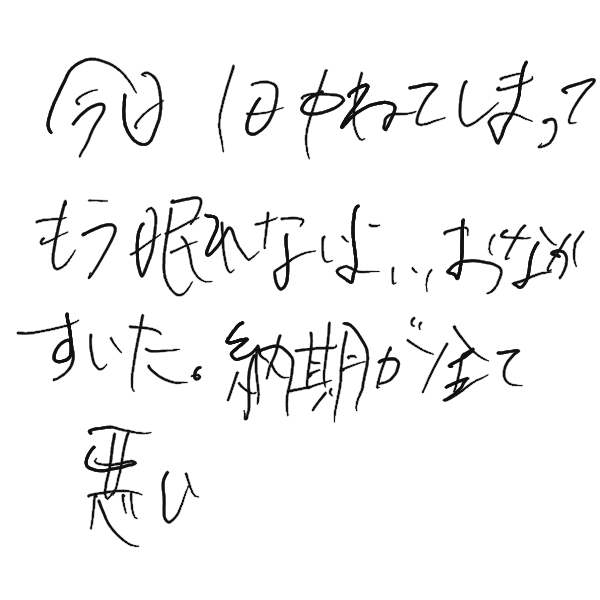 今日1日中ねてしまって
もう眠れないよ... おなか
すいた。納期が全て
悪い